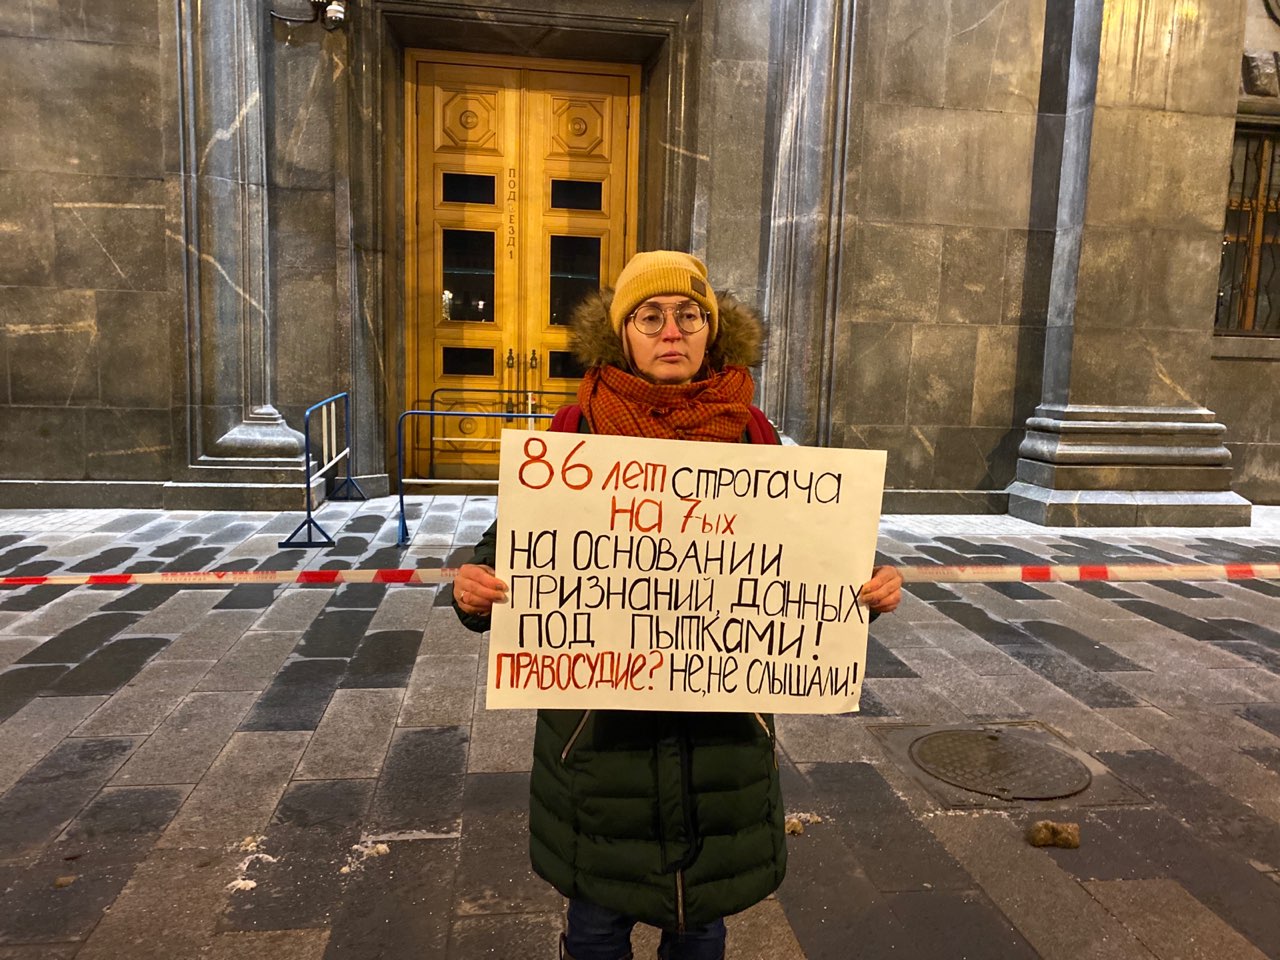 ПОДЪЕЗД 1
86 лет строгача
на 7-ых
на основании
признаний, данных
под пытками!
правосудие? не, не слышали!